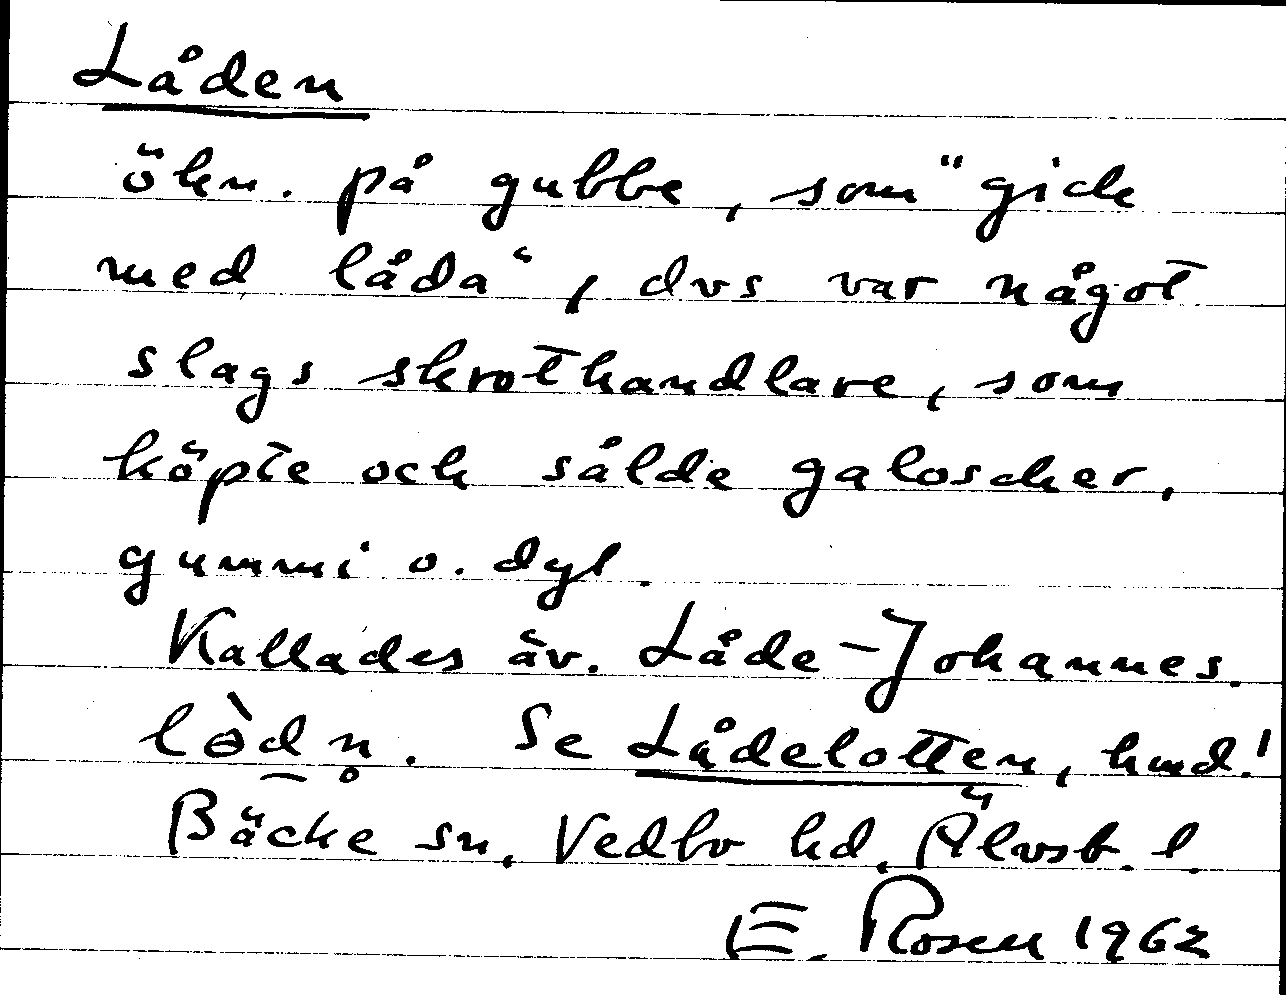 Låden
ökn. på gubbe, som "gick
med låda", dvs var något
slags skrothandlare, som
köpte och sålde galoscher,
gummi o. dyl.
Kallades äv. Låde-Johannes.
lòdn̥. Se Lådelotten, hmd!
Bäcke sn, Vedbo hd, Älvsb. l.
E. Rosen 1962